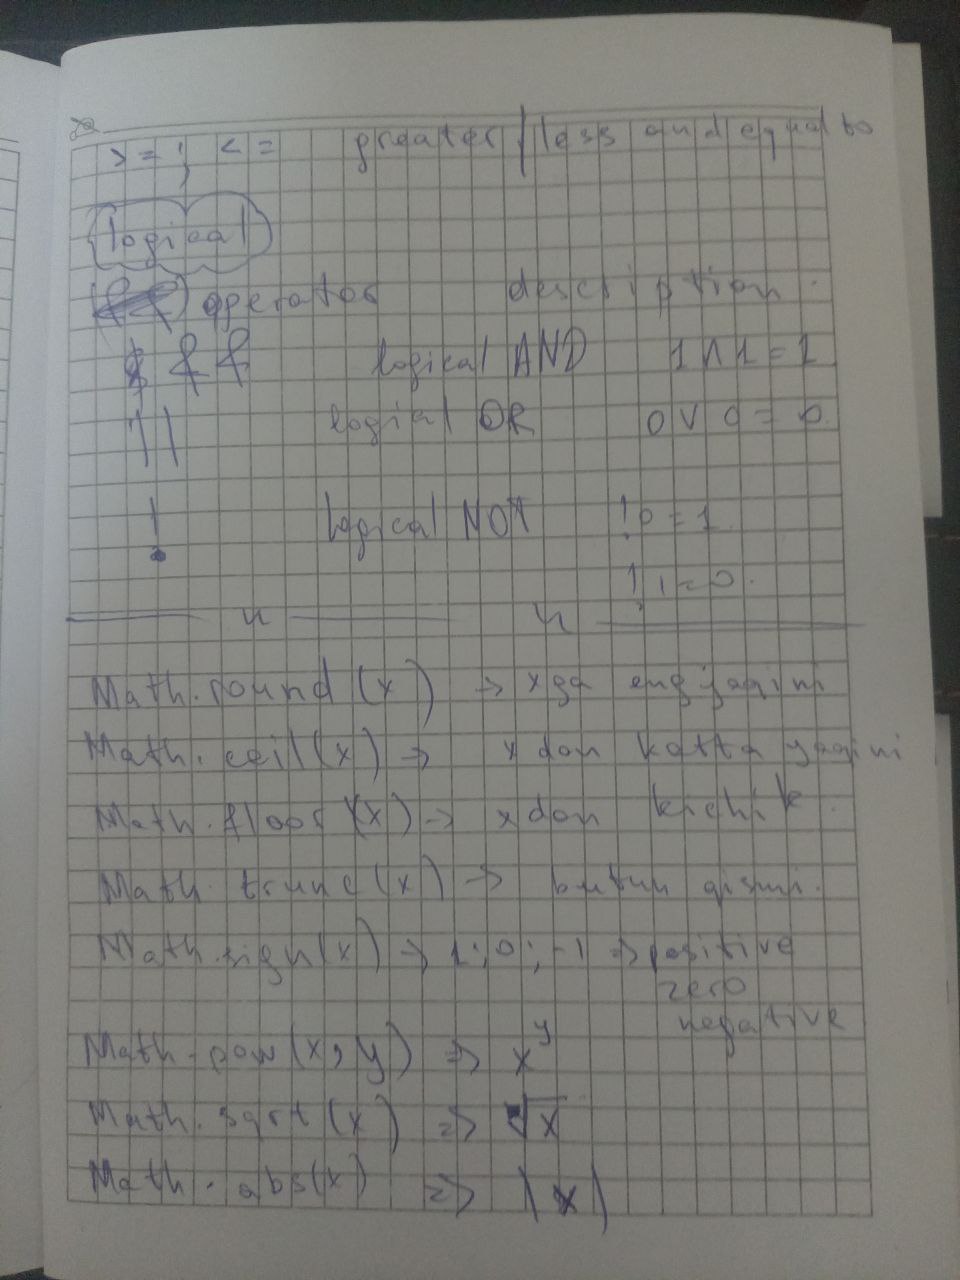 >= ; <= greater / less and equal to
logical
operator description
&& logical AND 1 ∧ 1 = 1
|| logial OR 0 ∨ 0 = 0.
! logical NOT !0 = 1.
!1 = 0.
Math.round(x) -> x ga eng yaqini
Math.ceil(x) -> x dan katta yaqini
Math.floor(x) -> x dan kichik.
Math.trunc(x) -> butun qismi.
Math.sign(x) -> 1; 0; -1 => positive
zero
negative
Math.pow(x, y) => x^y
Math.sqrt(x) => √x
Math.abs(x) => |x|